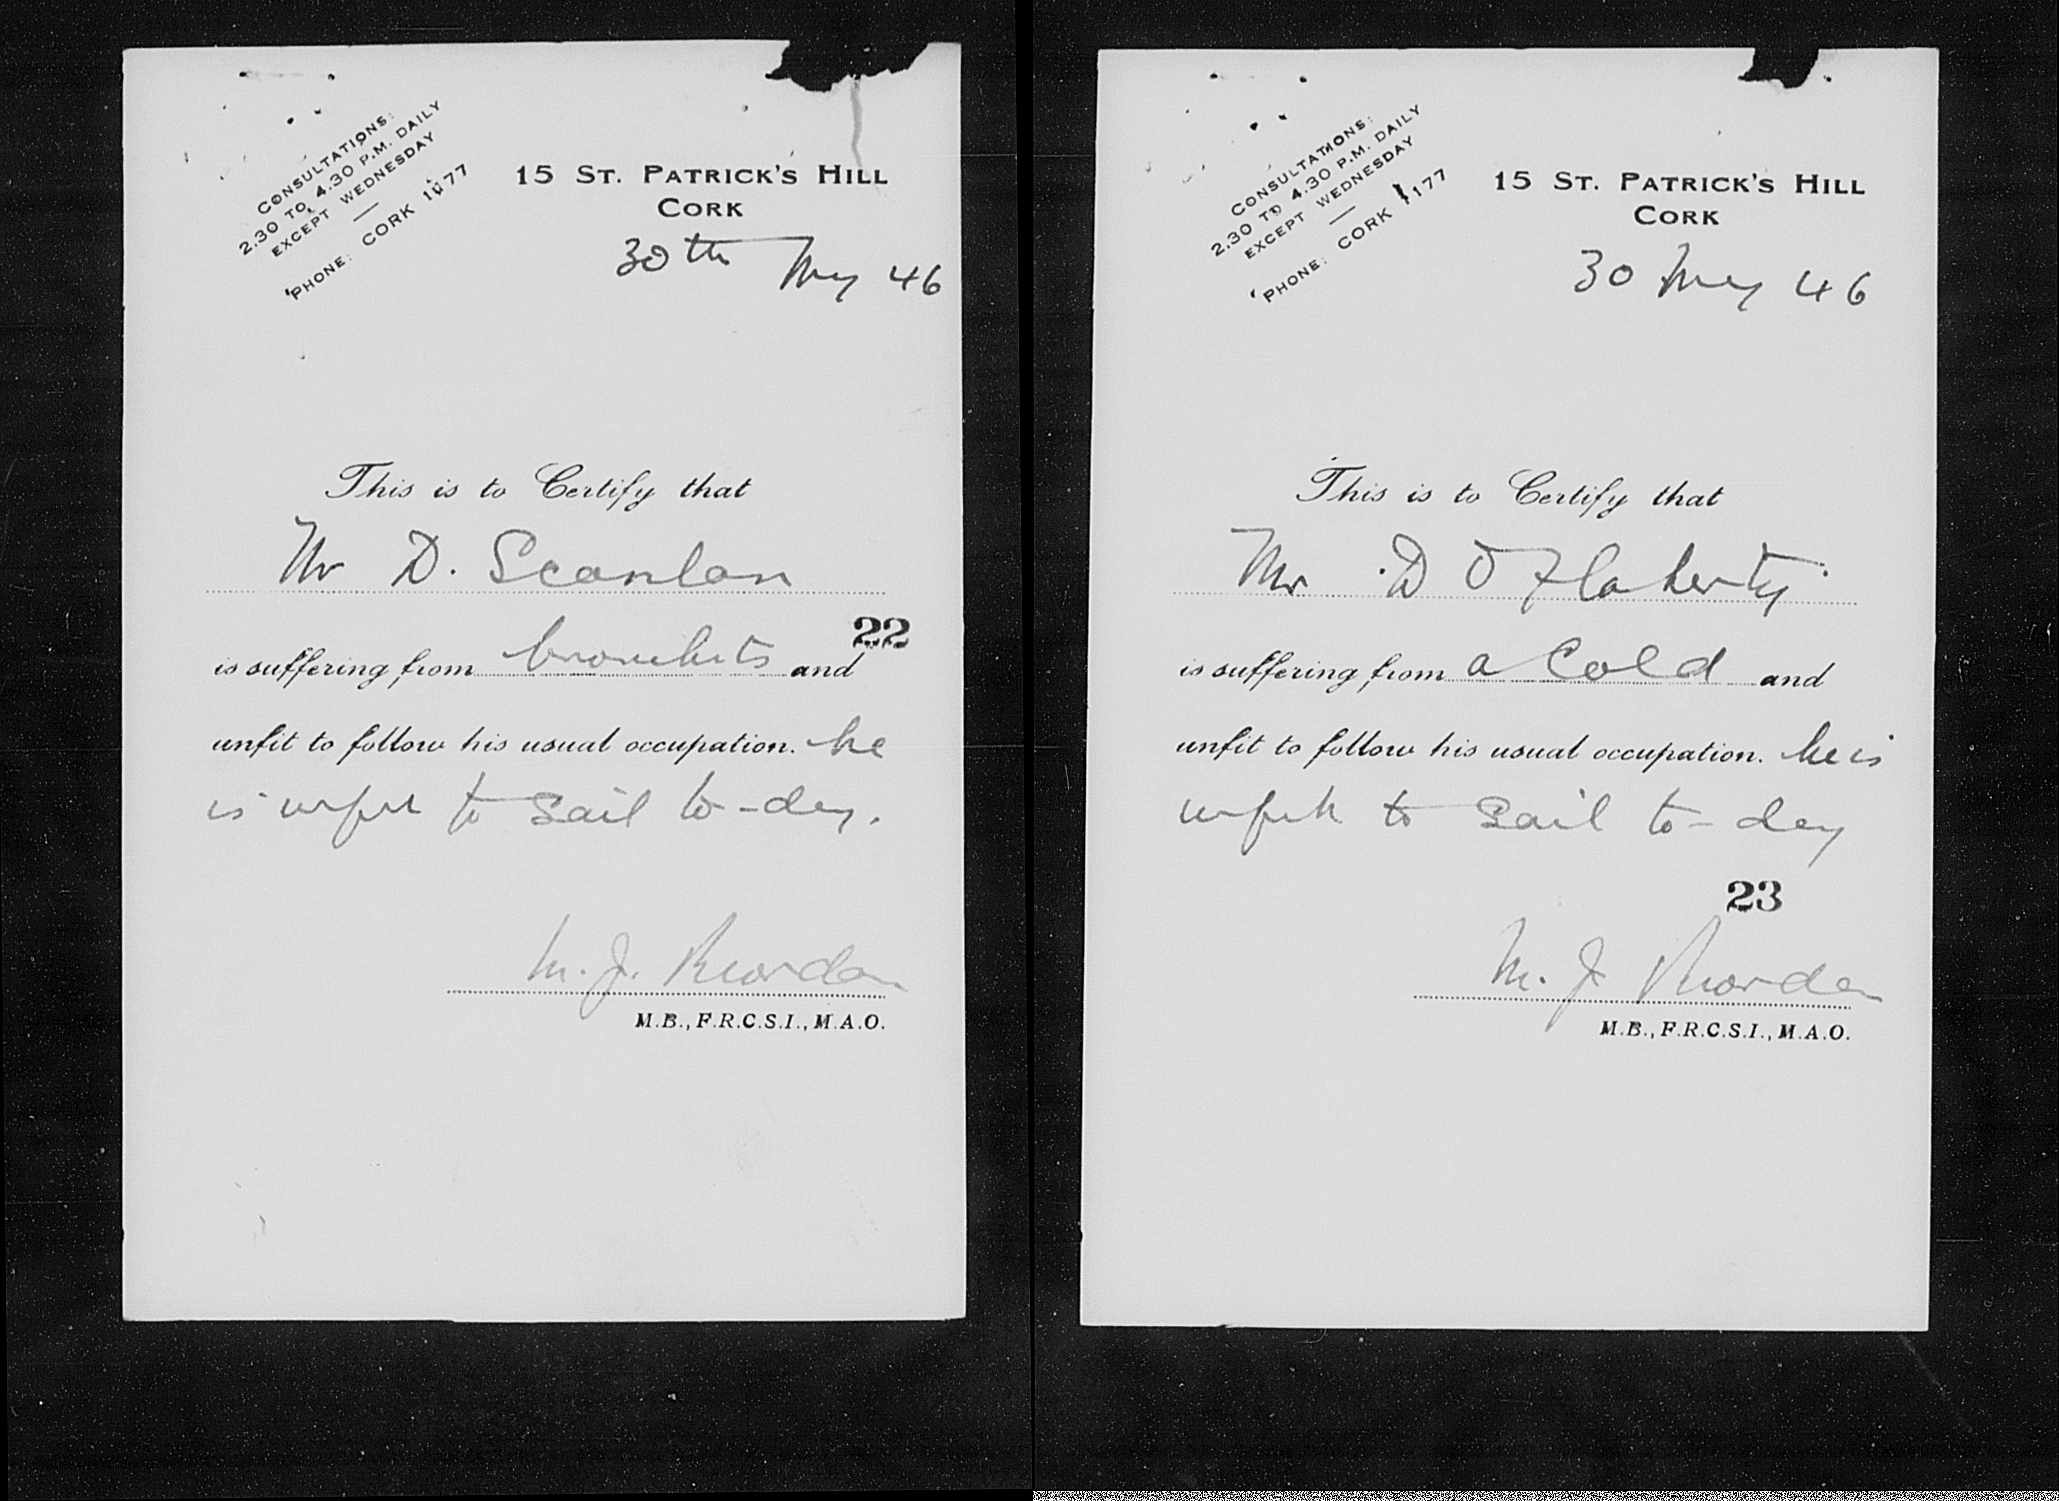 CONSULTATIONS:
2.30 TO 4.30 P.M. DAILY
EXCEPT WEDNESDAY
—
'PHONE: CORK 1177
15 ST. PATRICK'S HILL
CORK
30th May 46
This is to Certify that
Mr D. Scanlan
22
is suffering from bronchits and
unfit to follow his usual occupation. he
is unfit to sail to-day.
M. J. Riordan
M.B., F.R.C.S.I., M.A.O.
CONSULTATIONS:
2.30 TO 4.30 P.M. DAILY
EXCEPT WEDNESDAY
—
'PHONE: CORK 1177
15 ST. PATRICK'S HILL
CORK
30 May 46
This is to Certify that
Mr D O Flaherty
is suffering from a Cold and
unfit to follow his usual occupation. he is
unfit to sail to-day
23
M. J Riordan
M.B., F.R.C.S.I., M.A.O.